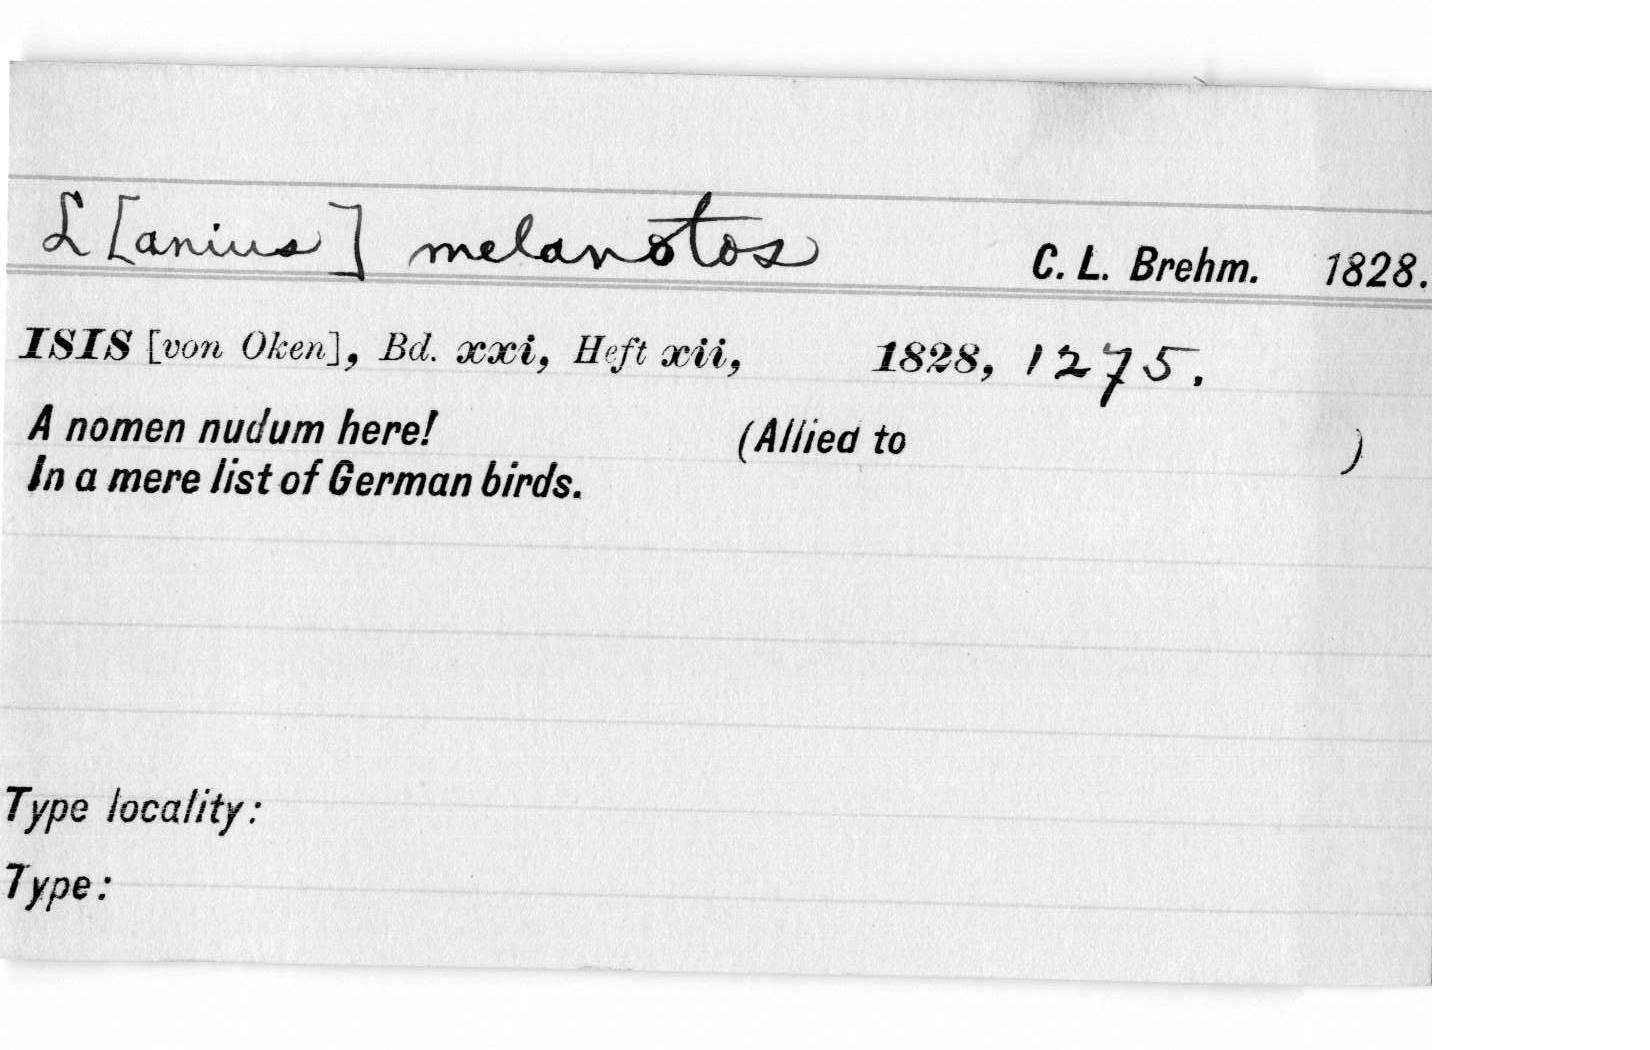 L[anius] melanotos C. L. Brehm. 1828.
ISIS [von Oken], Bd. xxi, Heft xii, 1828, 1275.
A nomen nudum here! (Allied to )
In a mere list of German birds.
Type locality:
Type: